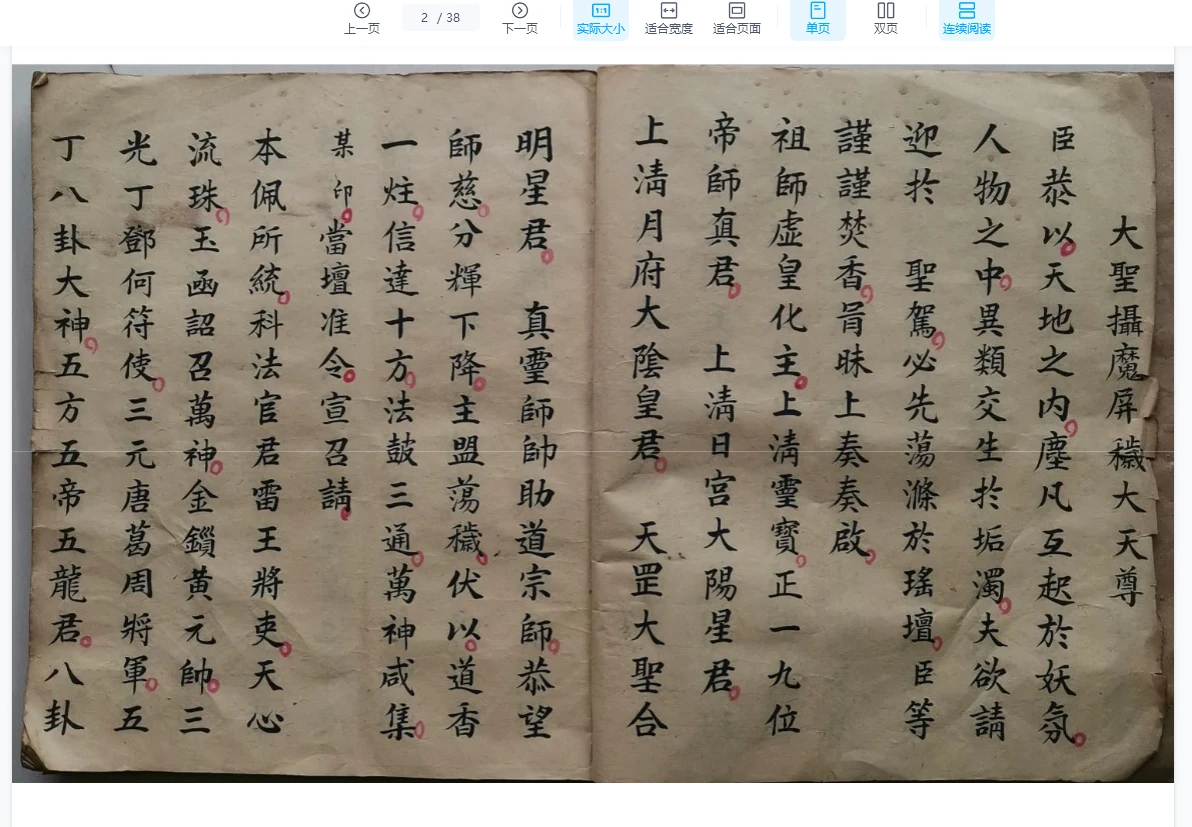 上一页
2 / 38
下一页
实际大小
适合宽度
适合页面
单页
双页
连续阅读
大聖攝魔屏穢大天尊
臣恭以天地之内塵凡互起於妖氛
人物之中異類交生於垢濁夫欲請
迎於 聖駕必先蕩滌於瑤壇臣等
謹謹焚香肎昧上奏奏啟
祖師虛皇化主上清靈寶正一九位
帝師真君 上清日宮大陽星君
上清月府大陰皇君 天罡大聖合
明星君 真靈師帥助道宗師恭望
師慈分輝下降主盟蕩穢伏以道香
一炷信達十方法鼓三通萬神咸集
某印當壇准令宣召請
本佩所統科法官君雷王將吏天心
流珠玉函詔召萬神金鎖黄元帥三
光丁鄧何符使三元唐葛周將軍五
丁八卦大神五方五帝五龍君八卦